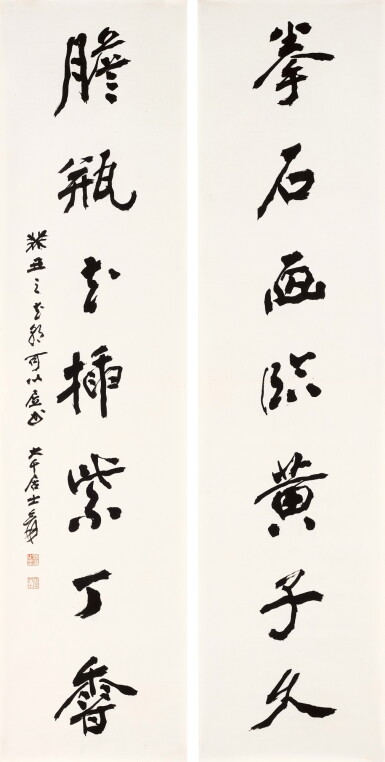 拳石画臨黄子久
膽瓶花插紫丁香
癸丑之花朝可以居書 大千居士爰